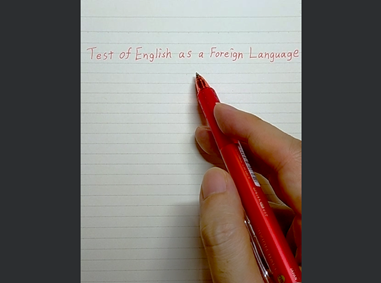 Test of English as a Foreign Language